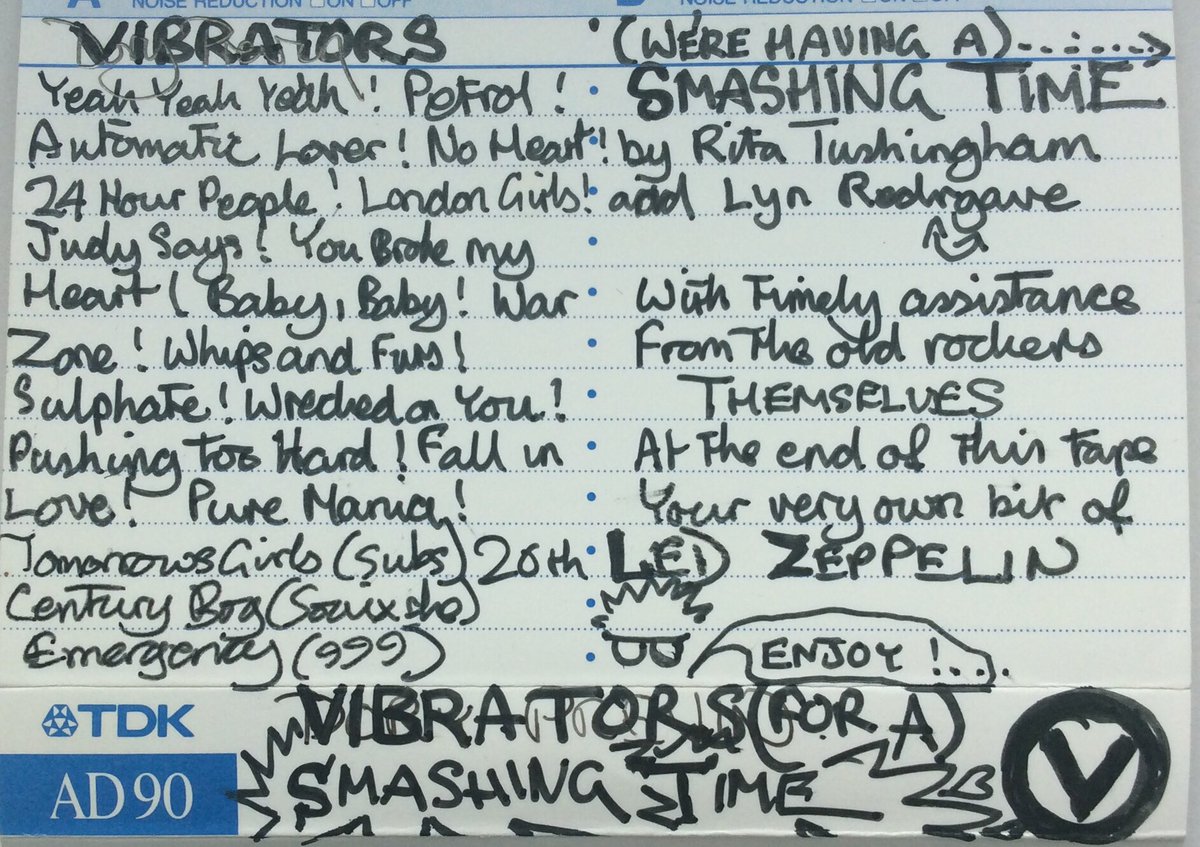 A NOISE REDUCTION □ON □OFF
VIBRATORS
Yeah Yeah Yeah! Petrol!
Automatic Lover! No Heart!
24 Hour People! London Girls!
Judy Says! You Broke my
Heart! Baby, Baby! War
Zone! Whips and Furs!
Sulphate! Wrecked on You!
Pushing Too Hard! Fall in
Love! Pure Mania!
Tomorrows Girls (Subs) 20th
Century Boy
Emergency (999)
B NOISE REDUCTION □ON □OFF
(WE'RE HAVING A)
SMASHING TIME
by Rita Tushingham
and Lyn Redrgave
With Timely assistance
From The old rockers
THEMSELVES
At the end of this tape
Your very own bit of
LED ZEPPELIN
ENJOY!...
TDK
AD 90
VIBRATORS (FOR A)
SMASHING TIME
V